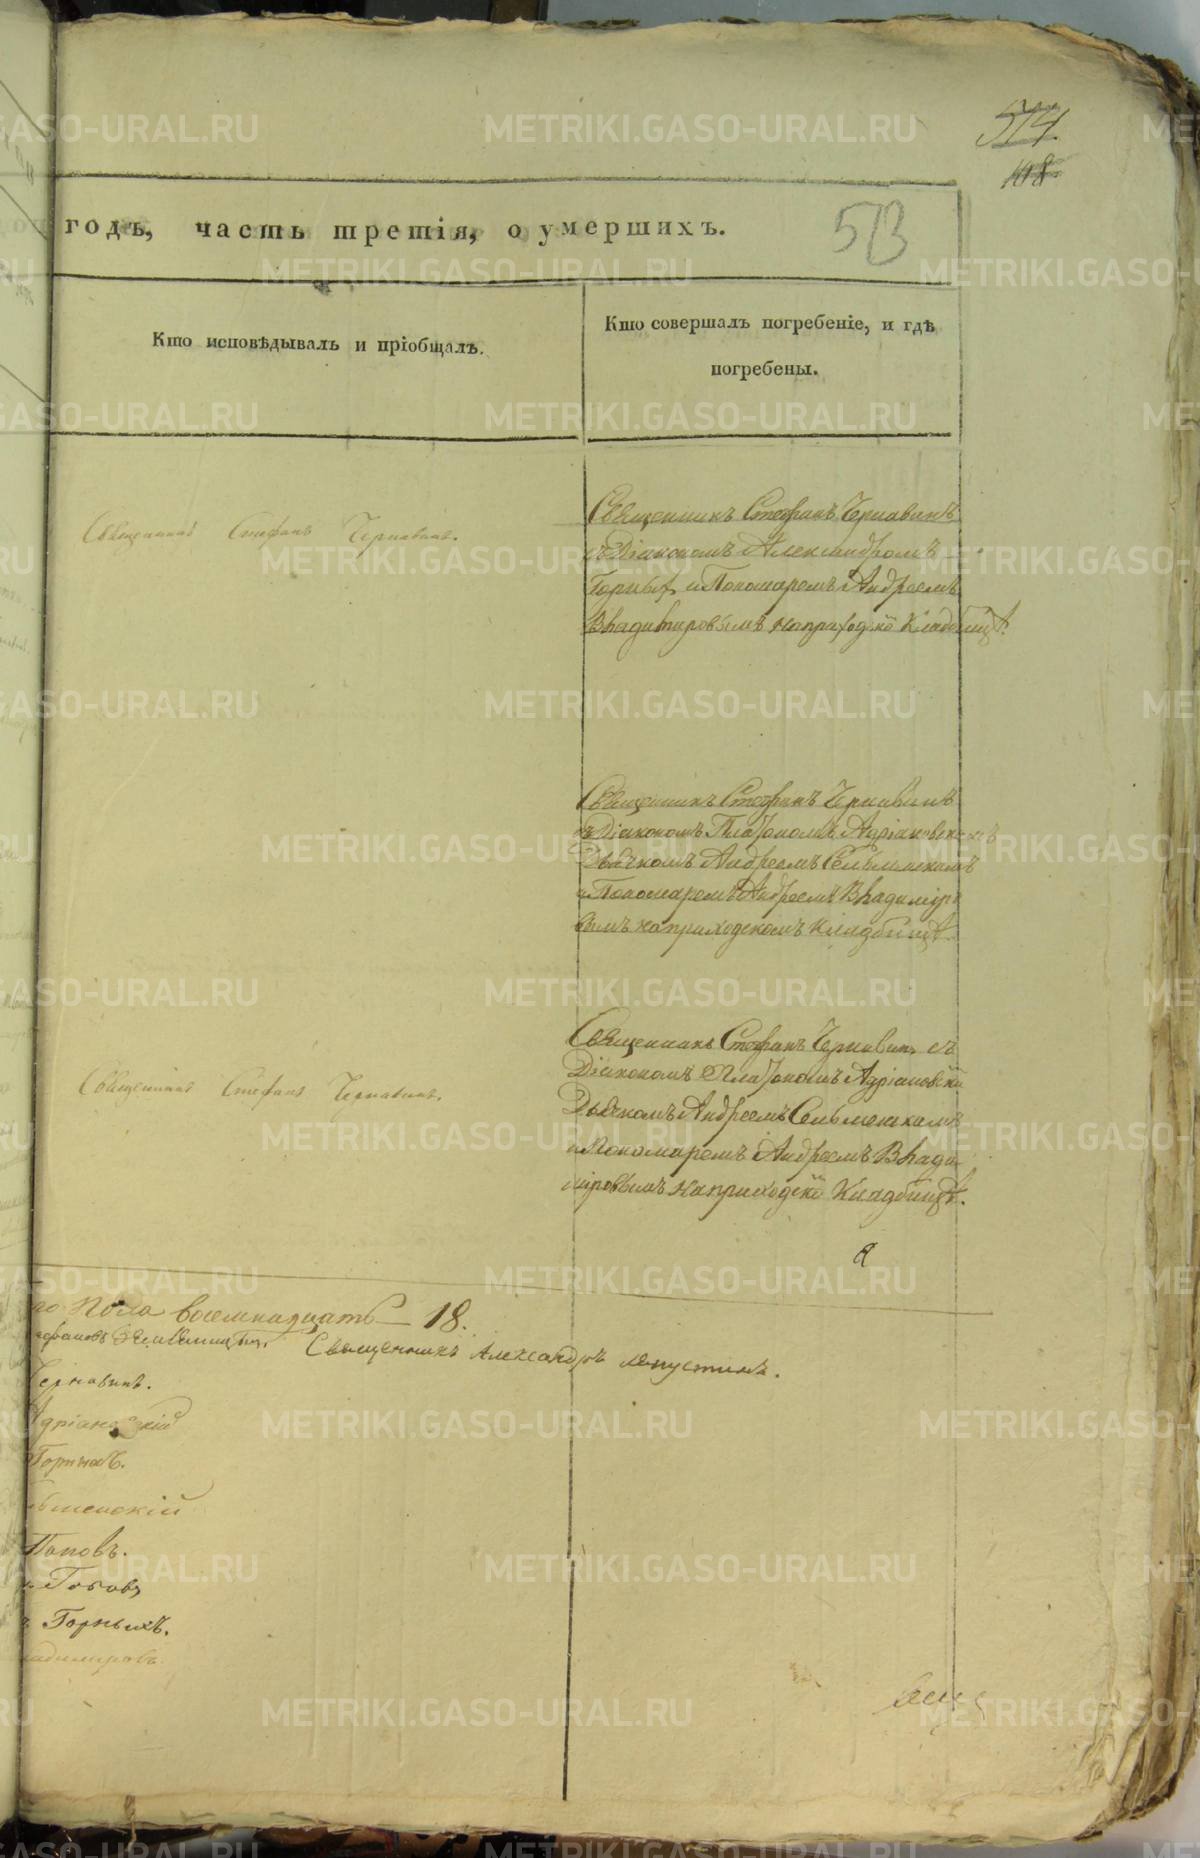 574.
108
годъ, часть третія, о умершихъ.
513
Кто исповѣдывалъ и пріобщалъ.
Кто совершалъ погребеніе, и гдѣ
погребены.
Священникъ Стефанъ Чернавинъ.
Священникъ Стефанъ Чернавинъ
съ Діакономъ Александромъ
Горныхъ и Пономаремъ Андреемъ
Владимировымъ на приходско Кладбищѣ.
Священникъ Стефанъ Чернавинъ
съ Діакономъ Платономъ Адріановскимъ
Дьячкомъ Андреемъ
и Пономаремъ Андреемъ Владимиро
вымъ на приходскомъ Кладбищѣ.
Священникъ Стефанъ Чернавинъ.
Священникъ Стефанъ Чернавинъ съ
Діакономъ Платономъ Адріановски
Дьячкомъ Андреемъ
и Пономаремъ Андреемъ Влади
міровымъ на приходско Кладбищѣ.
го пола восемнадцать — 18.
Священникъ Александръ Капустинъ.
Чернавинъ.
Адріановскій
Горныхъ.
Поповъ.
Поповъ
Горныхъ.
ладимировъ.
METRIKI.GASO-URAL.RU